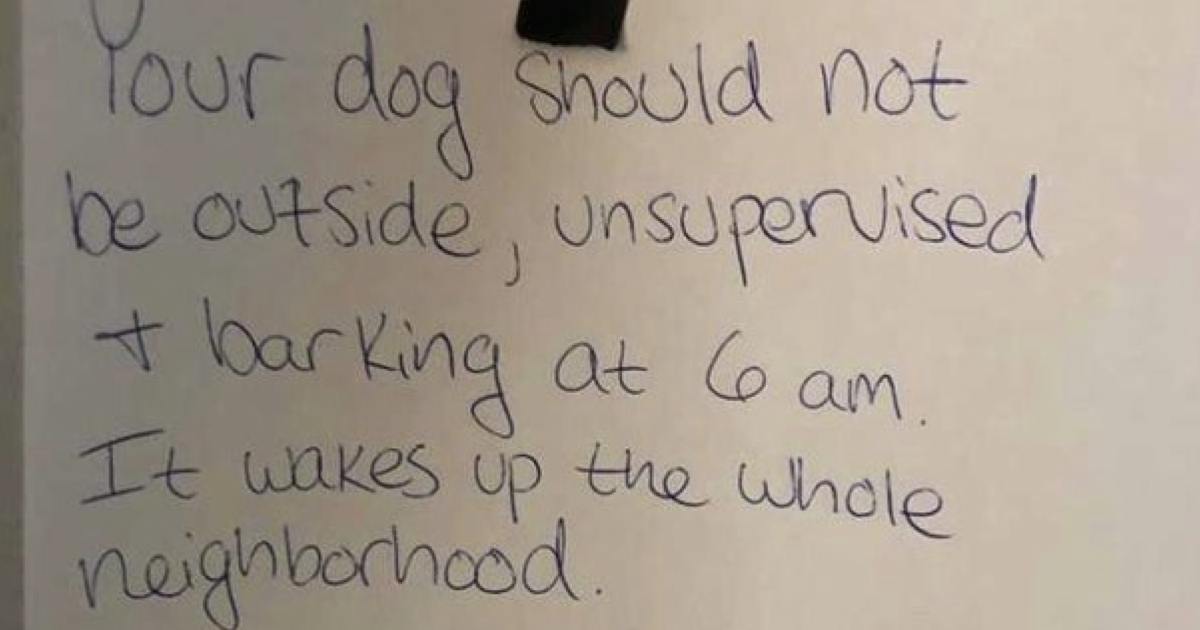 Your dog should not
be outside, unsupervised
+ barking at 6 am.
It wakes up the whole
neighborhood.